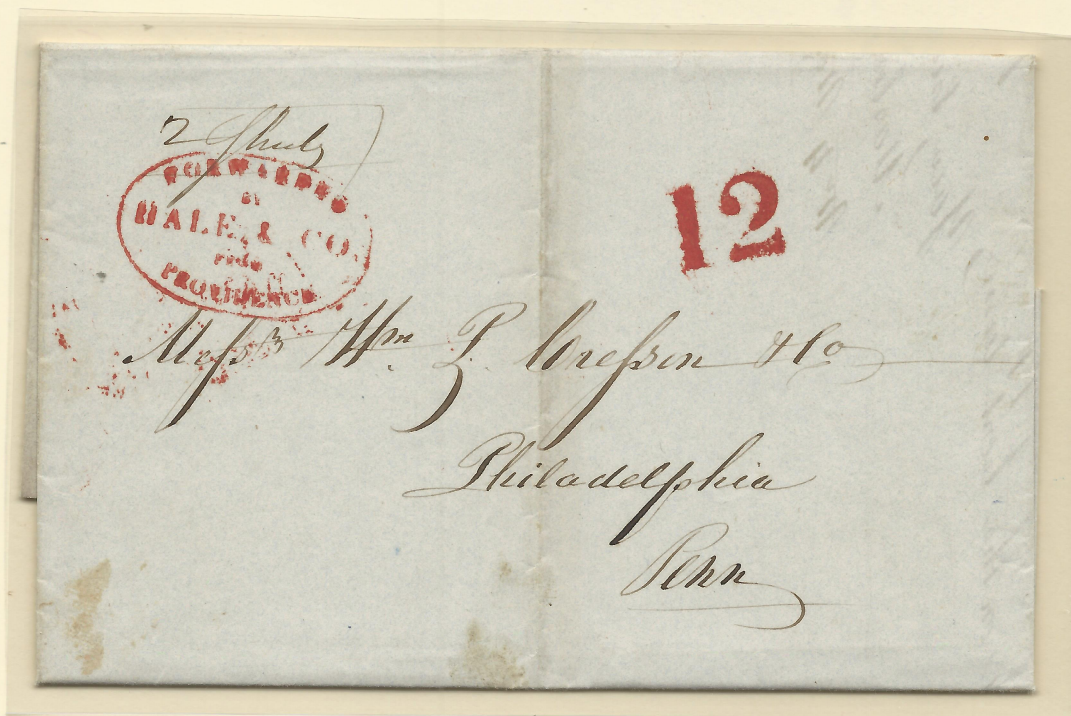 2
FORWARDED
BY
HALE & CO.
FROM
PROVIDENCE
12
Messrs Wm P. Cresson & Co
Philadelphia
Penn